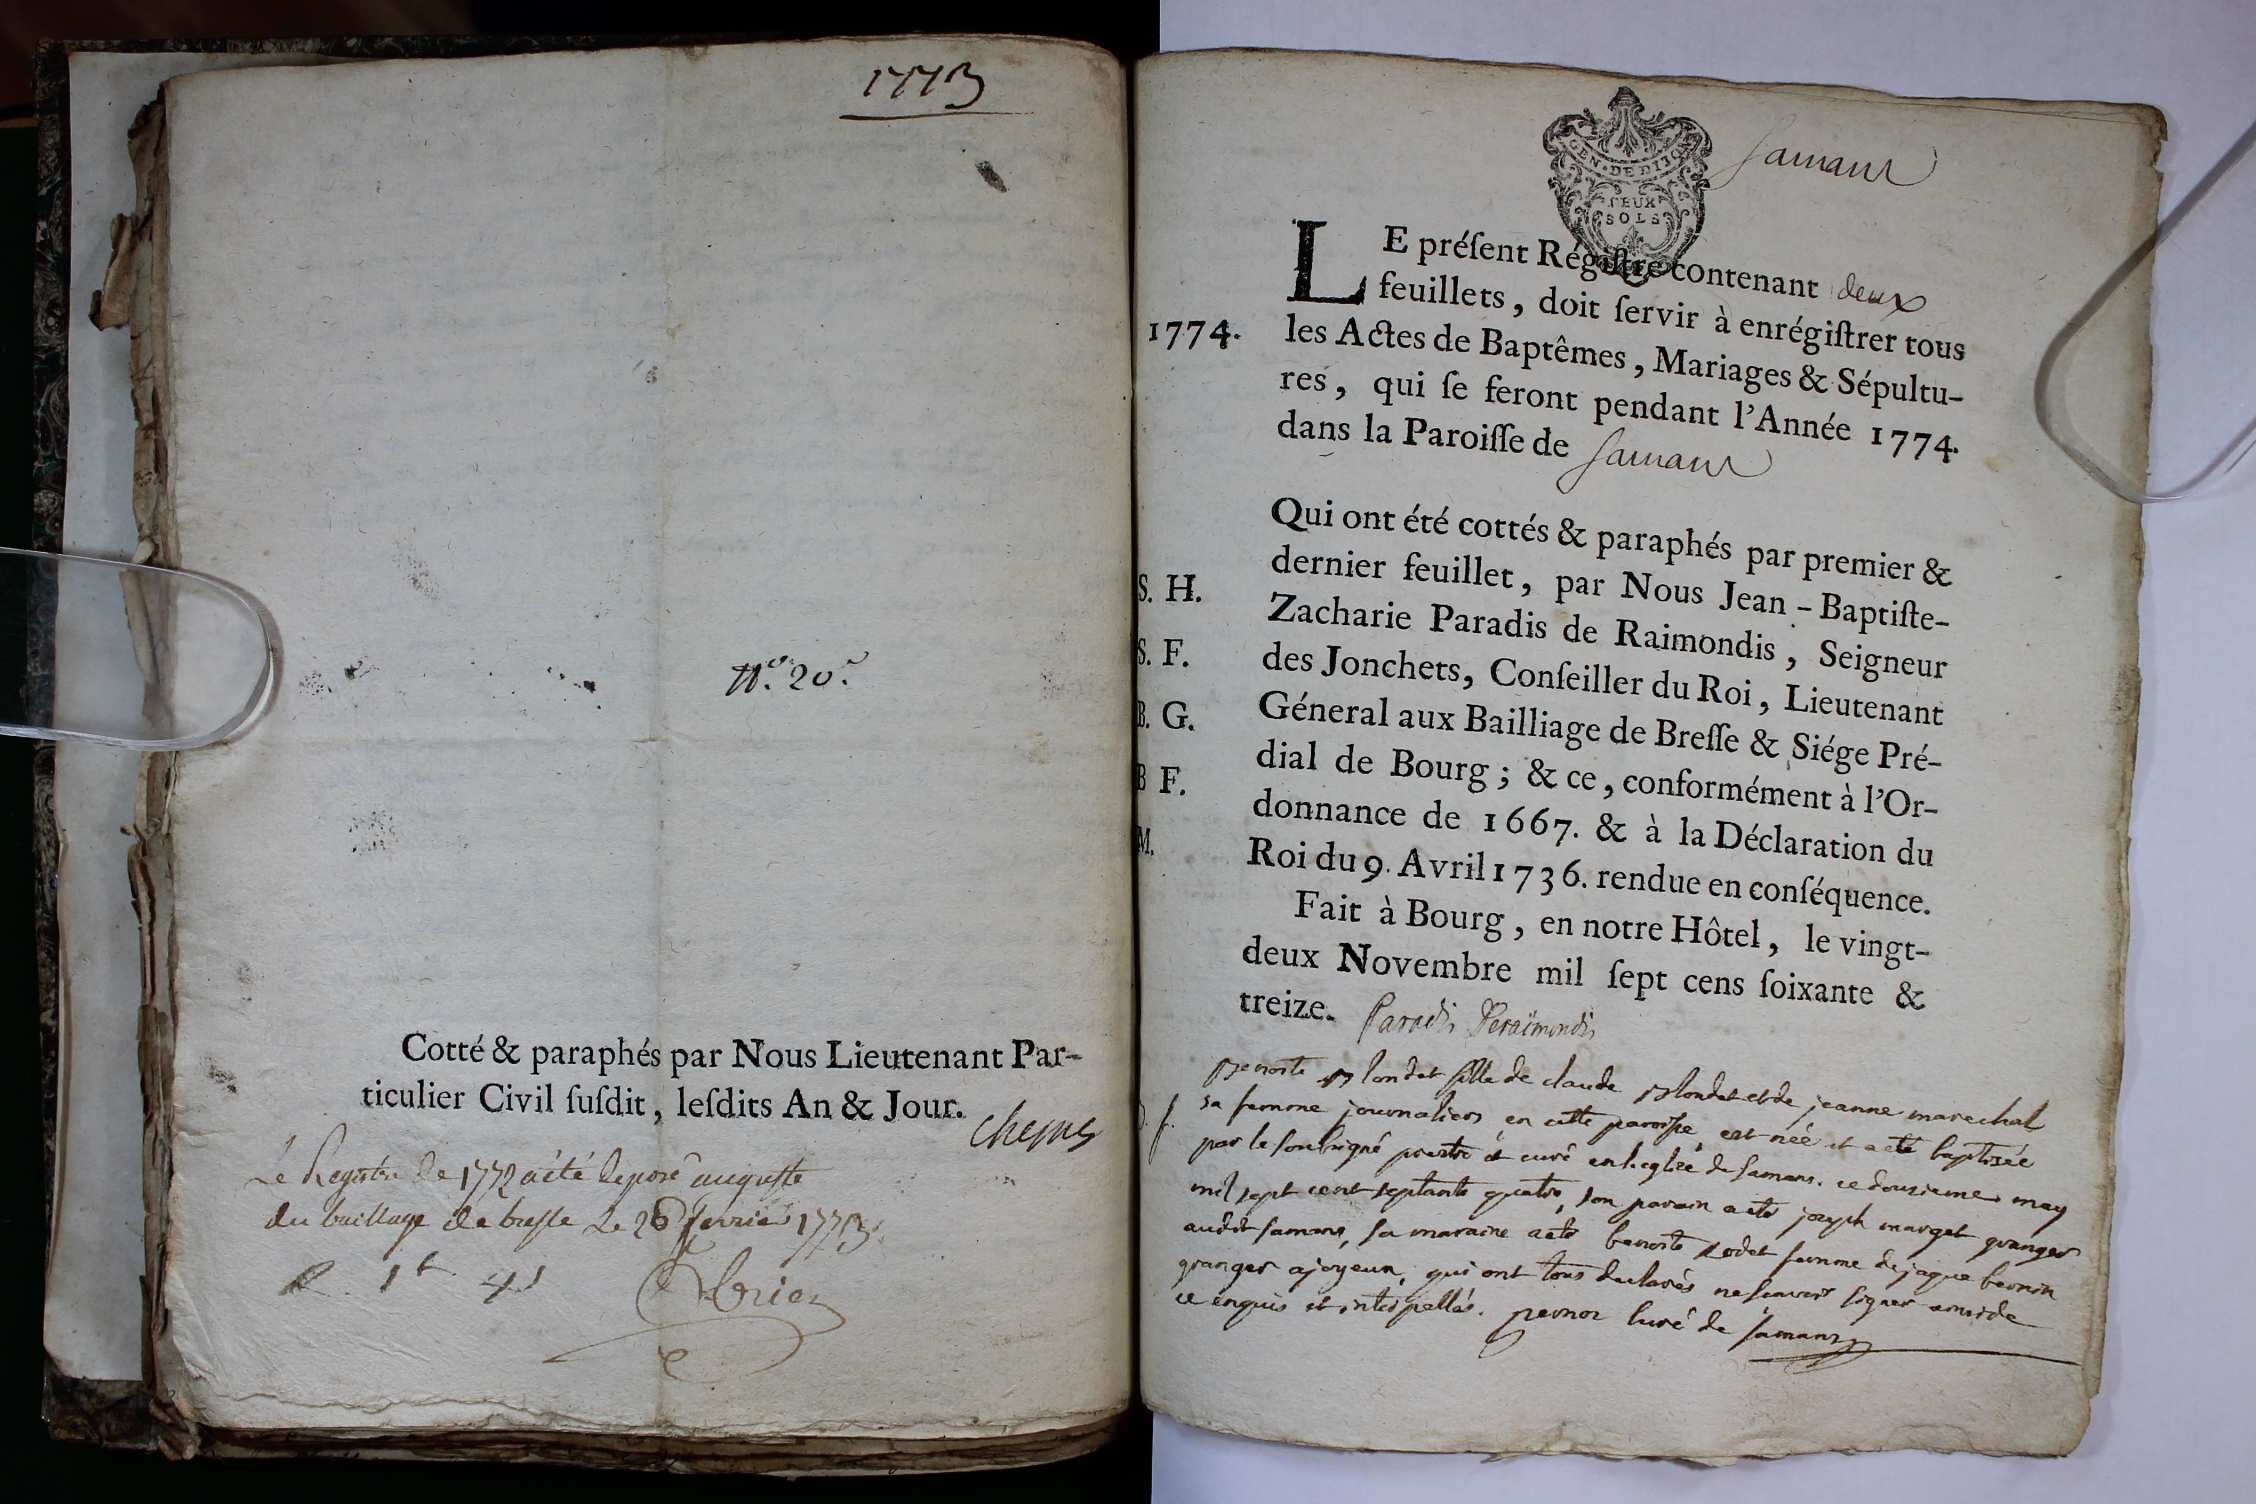 1773
N.º 20.e
Cotté & paraphés par Nous Lieutenant Par-
ticulier Civil ſuſdit, leſdits An & Jour.
Le Registre de 1772 a été déposé au greffe
du bailliage de bresse le 26 fevrier 1773.
GEN. DE DIJON
DEUX
SOLS
Samans
LE préſent Régiſtre contenant deux
feuillets, doit ſervir à enrégiſtrer tous
1774. les Actes de Baptêmes, Mariages & Sépultu-
res, qui ſe feront pendant l'Année 1774.
dans la Paroiſſe de Samans
Qui ont été cottés & paraphés par premier &
dernier feuillet, par Nous Jean-Baptiſte-
S. H. Zacharie Paradis de Raimondis, Seigneur
S. F. des Jonchets, Conſeiller du Roi, Lieutenant
B. G. Géneral aux Bailliage de Breſſe & Siége Pré-
B F. dial de Bourg; & ce, conformément à l'Or-
donnance de 1667. & à la Déclaration du
M. Roi du 9. Avril 1736. rendue en conſéquence.
Fait à Bourg, en notre Hôtel, le vingt-
deux Novembre mil ſept cens ſoixante &
treize. Paradis Deraimondis
benoite blondet fille de claude blondet et de jeanne marechal
sa femme journaliers en cette paroisse est née et a eté baptisée
par le soubsigné prestre et curé en l'eglise de Samans. ce douzieme may
mil sept cent septante quatre, son parain a eté joseph marget granger
audit samans, sa maraine a eté benoite femme de jaque bernin
granger a joyeux, qui ont tous declarés ne scavoir signer ainsi de
ce enquis et interpellés. pernoz curé de Samans